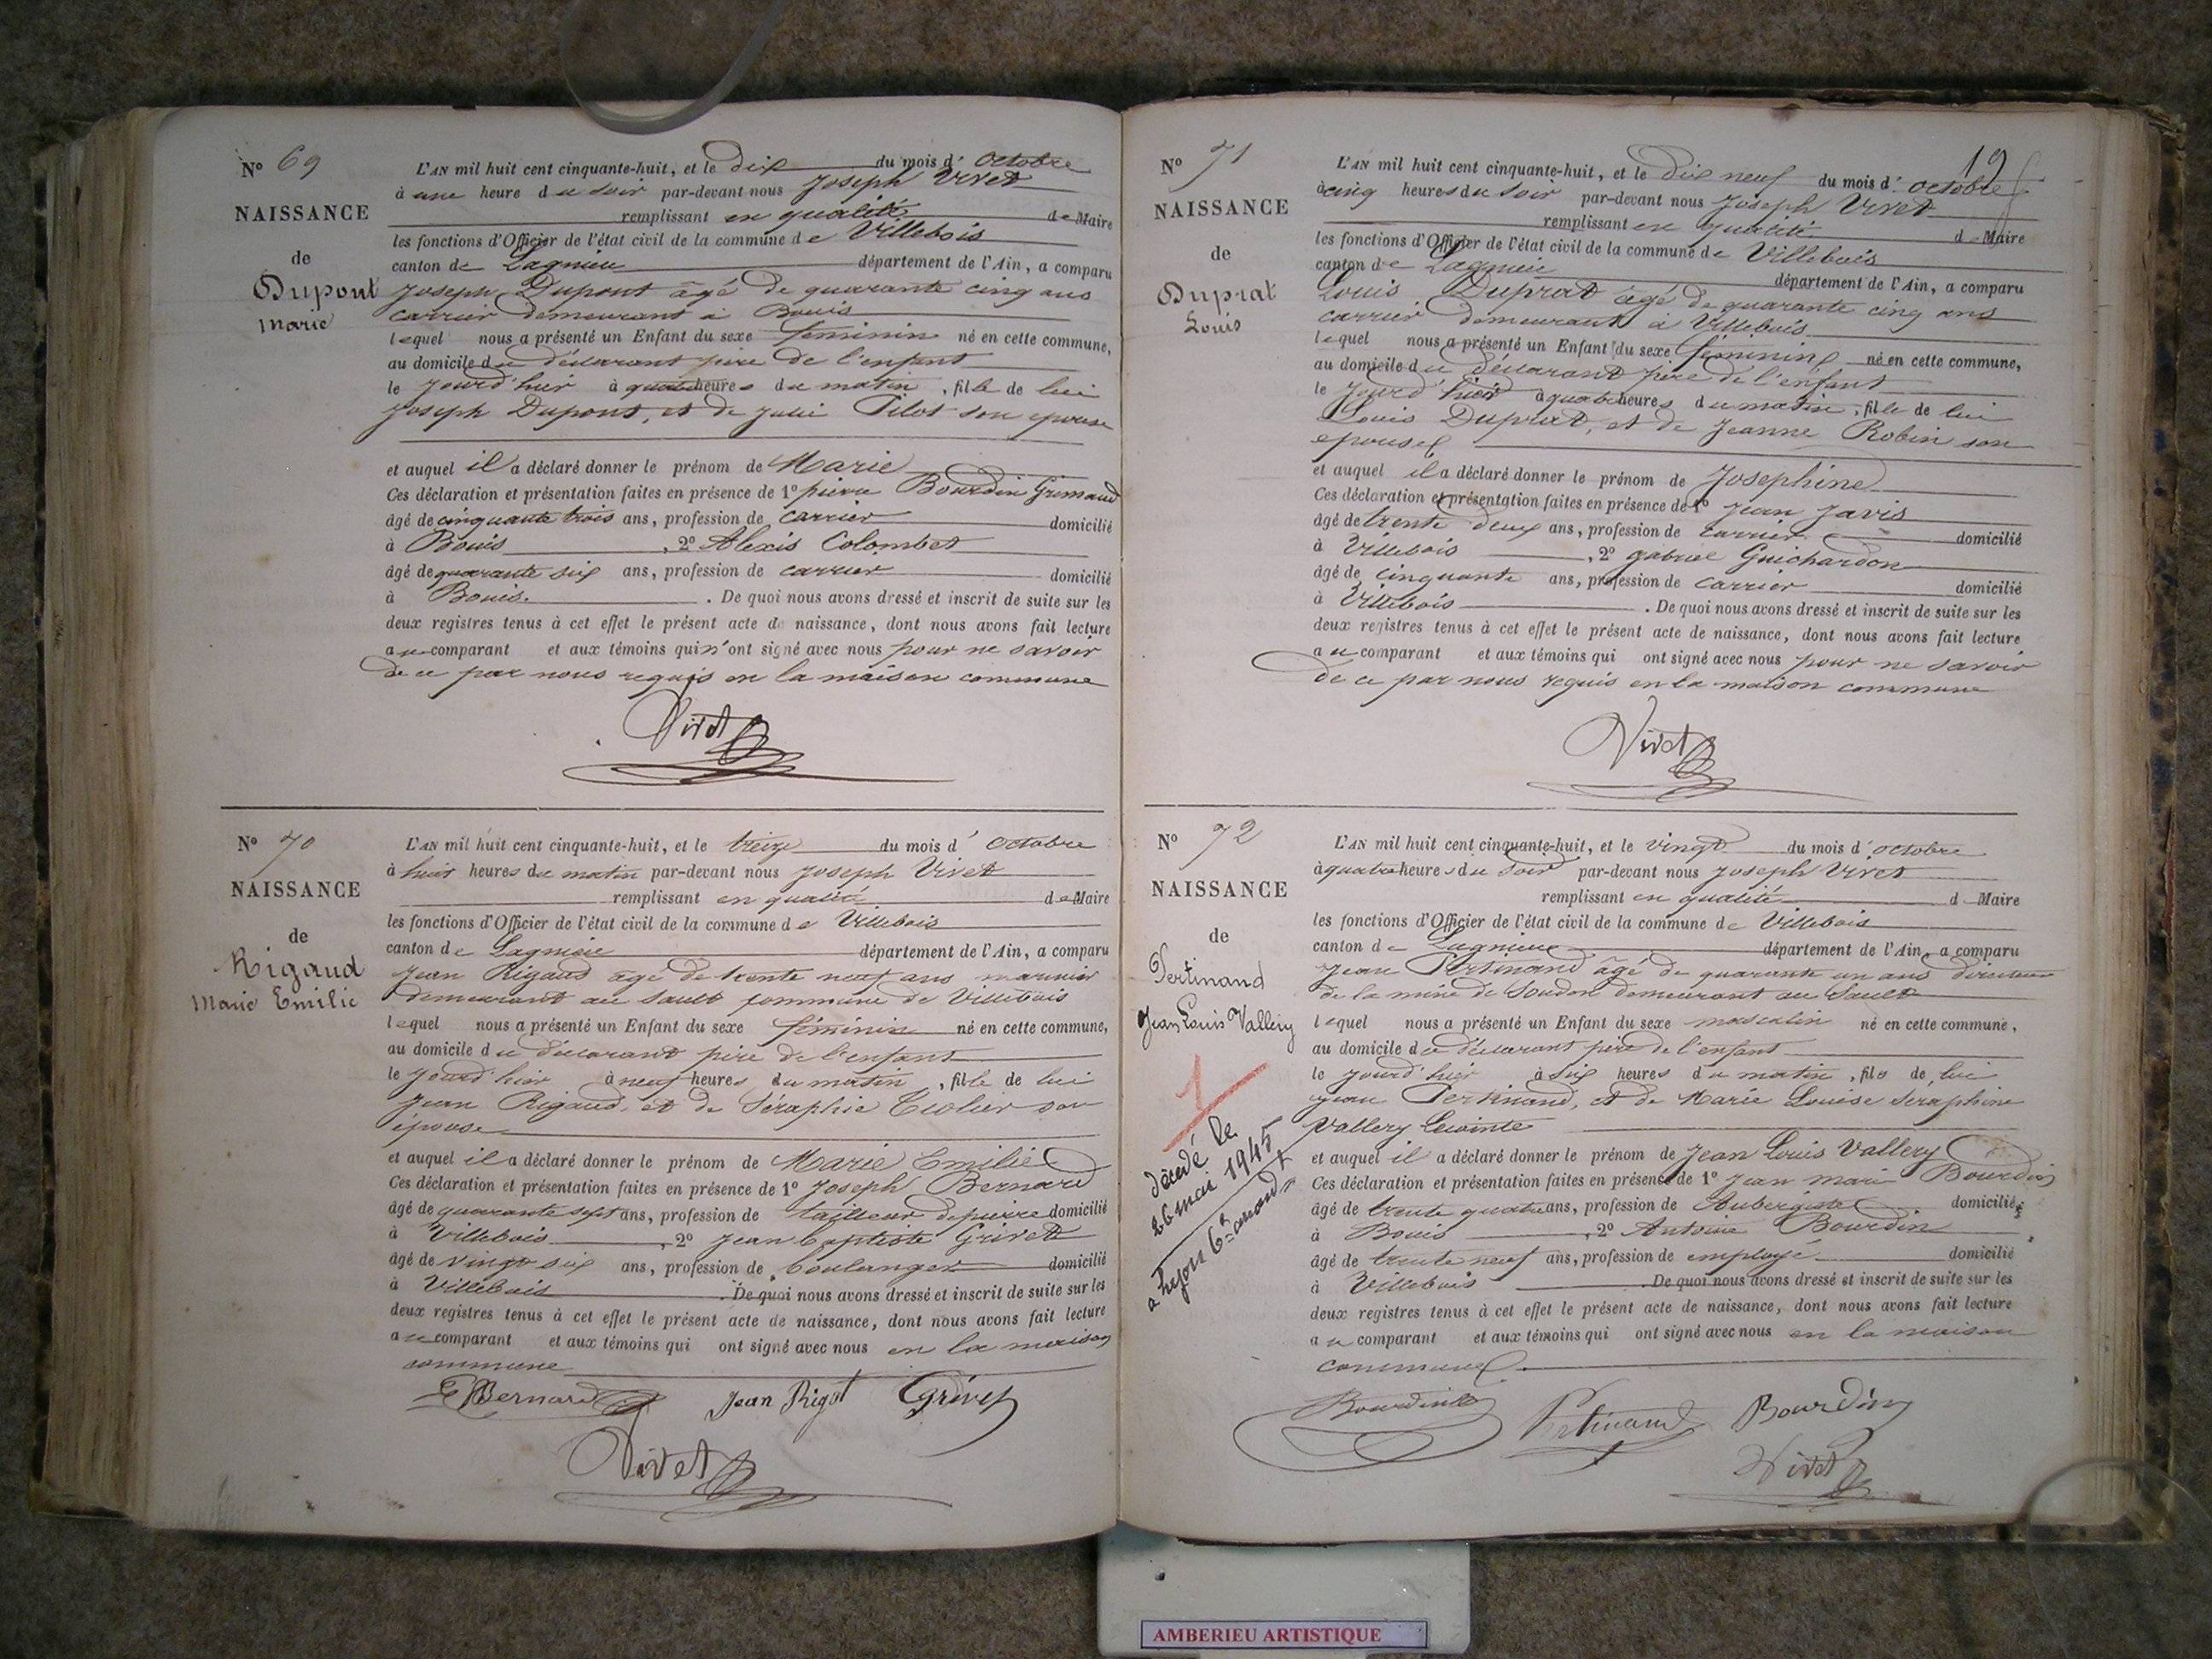 N° 69
NAISSANCE
de
Dupont
Marie
L'AN mil huit cent cinquante-huit, et le dix du mois d' octobre
à une heure du soir par-devant nous Joseph Vivet
remplissant en qualité de Maire
les fonctions d'Officier de l'état civil de la commune de Villebois
canton de Lagnieu département de l'Ain, a comparu
Joseph Dupont âgé de quarante cinq ans
carrier demeurant à Bouis
lequel nous a présenté un Enfant du sexe féminin né en cette commune,
au domicile du déclarant père de l'enfant
le jourd'hier à quatre heures du matin, fille de lui
Joseph Dupont, et de Julie Pilot son epouse
et auquel il a déclaré donner le prénom de Marie
Ces déclaration et présentation faites en présence de 1° pierre Bourdin Grimaud
âgé de cinquante trois ans, profession de carrier domicilié
à Bouis, 2° Alexis Colombet
âgé de quarante six ans, profession de carrier domicilié
à Bouis. . De quoi nous avons dressé et inscrit de suite sur les
deux registres tenus à cet effet le présent acte de naissance, dont nous avons fait lecture
au comparant et aux témoins qui n'ont signé avec nous pour ne savoir
de ce par nous requis en la maison commune
Vivet
N° 70
NAISSANCE
de
Rigaud
Marie Emilie
L'AN mil huit cent cinquante-huit, et le treize du mois d' octobre
à huit heures du matin par-devant nous Joseph Vivet
remplissant en qualité de Maire
les fonctions d'Officier de l'état civil de la commune de Villebois
canton de Lagnieu département de l'Ain, a comparu
Jean Rigaud âgé de trente neuf ans marinier
demeurant au Sault commune de Villebois
lequel nous a présenté un Enfant du sexe féminin né en cette commune,
au domicile du déclarant père de l'enfant
le jourd'hier à neuf heures du matin, fille de lui
Jean Rigaud, et de Séraphie Tiolier son
épouse
et auquel il a déclaré donner le prénom de Marie Emilie
Ces déclaration et présentation faites en présence de 1° Joseph Bernard
âgé de quarante sept ans, profession de tailleur de pierre domicilié
à Villebois, 2° Jean Baptiste Grivet
âgé de vingt six ans, profession de boulanger domicilié
à Villebois . De quoi nous avons dressé et inscrit de suite sur les
deux registres tenus à cet effet le présent acte de naissance, dont nous avons fait lecture
au comparant et aux témoins qui ont signé avec nous en la maison
commune
Bernard Jean Rigot Grivet
Vivet
19
N° 71
NAISSANCE
de
Duprat
Louis
L'AN mil huit cent cinquante-huit, et le dix neuf du mois d' octobre
à cinq heures du soir par-devant nous Joseph Vivet
remplissant en qualité de Maire
les fonctions d'Officier de l'état civil de la commune de Villebois
canton de Lagnieu département de l'Ain, a comparu
Louis Duprat âgé de quarante cinq ans
carrier demeurant à Villebois
lequel nous a présenté un Enfant du sexe féminin né en cette commune,
au domicile du déclarant père de l'enfant
le jourd'hier à quatre heures du matin, fille de lui
Louis Duprat, et de Jeanne Robin son
epouse
et auquel il a déclaré donner le prénom de Josephine
Ces déclaration et présentation faites en présence de 1° Jean Javis
âgé de trente deux ans, profession de carrier domicilié
à Villebois, 2° gabriel Guichardon
âgé de cinquante ans, profession de carrier domicilié
à Villebois . De quoi nous avons dressé et inscrit de suite sur les
deux registres tenus à cet effet le présent acte de naissance, dont nous avons fait lecture
au comparant et aux témoins qui ont signé avec nous pour ne savoir
de ce par nous requis en la maison commune
Vivet
N° 72
NAISSANCE
de
Pertinand
Jean Louis Vallery
1
décédé le
26 mai 1945
a Lyon 6e arrondt
L'AN mil huit cent cinquante-huit, et le vingt du mois d' octobre
à quatre heures du soir par-devant nous Joseph Vivet
remplissant en qualité d Maire
les fonctions d'Officier de l'état civil de la commune de Villebois
canton de Lagnieu département de l'Ain, a comparu
Jean Pertinand âgé de quarante un ans directeur
de la mine de Soudon demeurant au Sault
lequel nous a présenté un Enfant du sexe masculin né en cette commune,
au domicile du déclarant père de l'enfant
le jourd'hier à six heures du matin, fils de lui
Jean Pertinand, et de Marie Louise Seraphine
Vallery Lecointe
et auquel il a déclaré donner le prénom de Jean Louis Vallery
Ces déclaration et présentation faites en présence de 1° Jean marie Bourdin
âgé de trente quatre ans, profession de Aubergiste domicilié
à Bouis, 2° Antoine Bourdin
âgé de trente neuf ans, profession de employé domicilié
à Villebois . De quoi nous avons dressé et inscrit de suite sur les
deux registres tenus à cet effet le présent acte de naissance, dont nous avons fait lecture
au comparant et aux témoins qui ont signé avec nous en la maison
commune
Bourdin Pertinand Bourdin
Vivet
AMBERIEU ARTISTIQUE